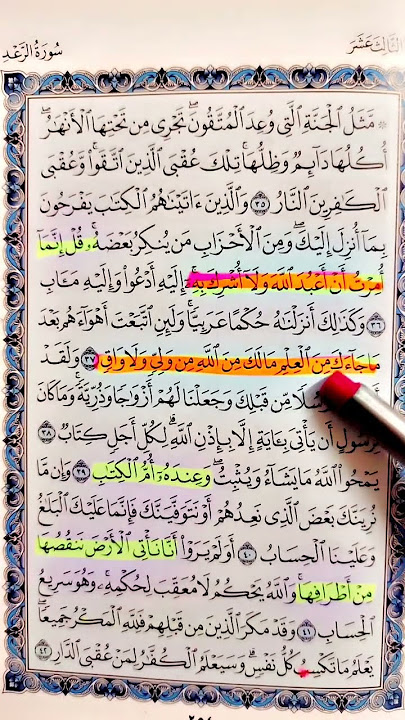 الثَّالِثَ عَشَرَ
سُورَةُ الرَّعْدِ
۞ مَّثَلُ ٱلْجَنَّةِ ٱلَّتِى وُعِدَ ٱلْمُتَّقُونَ ۖ تَجْرِى مِن تَحْتِهَا ٱلْأَنْهَٰرُ ۖ
أُكُلُهَا دَآئِمٌ وَظِلُّهَا ۚ تِلْكَ عُقْبَى ٱلَّذِينَ ٱتَّقَوا۟ ۖ وَّعُقْبَى
ٱلْكَٰفِرِينَ ٱلنَّارُ ٣٥ وَٱلَّذِينَ ءَاتَيْنَٰهُمُ ٱلْكِتَٰبَ يَفْرَحُونَ
بِمَآ أُنزِلَ إِلَيْكَ ۖ وَمِنَ ٱلْأَحْزَابِ مَن يُنكِرُ بَعْضَهُۥ ۚ قُلْ إِنَّمَآ
أُمِرْتُ أَنْ أَعْبُدَ ٱللَّهَ وَلَآ أُشْرِكَ بِهِۦٓ ۚ إِلَيْهِ أَدْعُوا۟ وَإِلَيْهِ مَـَٔابِ
٣٦ وَكَذَٰلِكَ أَنزَلْنَٰهُ حُكْمًا عَرَبِيًّا ۚ وَلَئِنِ ٱتَّبَعْتَ أَهْوَآءَهُم بَعْدَ
مَا جَآءَكَ مِنَ ٱلْعِلْمِ مَا لَكَ مِنَ ٱللَّهِ مِن وَلِىٍّ وَلَا وَاقٍ ٣٧ وَلَقَدْ
رُسُلًا مِّن قَبْلِكَ وَجَعَلْنَا لَهُمْ أَزْوَٰجًا وَذُرِّيَّةً ۚ وَمَا كَانَ
لِرَسُولٍ أَن يَأْتِىَ بِـَٔايَةٍ إِلَّا بِإِذْنِ ٱللَّهِ ۗ لِكُلِّ أَجَلٍ كِتَابٌ ٣٨
يَمْحُوا۟ ٱللَّهُ مَا يَشَآءُ وَيُثْبِتُ ۖ وَعِندَهُۥٓ أُمُّ ٱلْكِتَٰبِ ٣٩ وَإِن مَّا
نُرِيَنَّكَ بَعْضَ ٱلَّذِى نَعِدُهُمْ أَوْ نَتَوَفَّيَنَّكَ فَإِنَّمَا عَلَيْكَ ٱلْبَلَٰغُ
وَعَلَيْنَا ٱلْحِسَابُ ٤٠ أَوَلَمْ يَرَوْا۟ أَنَّا نَأْتِى ٱلْأَرْضَ نَنقُصُهَا
مِنْ أَطْرَافِهَا ۚ وَٱللَّهُ يَحْكُمُ لَا مُعَقِّبَ لِحُكْمِهِۦ ۚ وَهُوَ سَرِيعُ
ٱلْحِسَابِ ٤١ وَقَدْ مَكَرَ ٱلَّذِينَ مِن قَبْلِهِمْ فَلِلَّهِ ٱلْمَكْرُ جَمِيعًا ۖ
يَعْلَمُ مَا تَكْسِبُ كُلُّ نَفْسٍ ۗ وَسَيَعْلَمُ ٱلْكُفَّٰرُ لِمَنْ عُقْبَى ٱلدَّارِ ٤٢